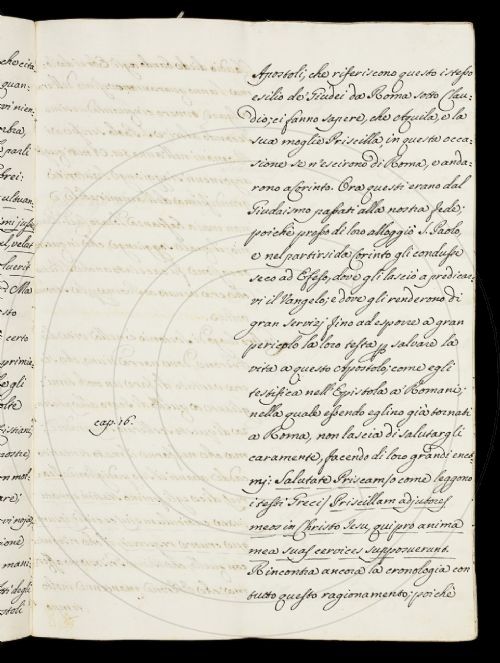 Apostoli, che riferiscono questo istesso
esilio de Giudei da Roma sotto Clau-
dio; ci fanno sapere, che Aquila, e la
sua moglie Priscilla, in questa occa-
sione se n'escirono di Roma, e anda-
rono a Corinto. Ora questi erano dal
Giudaismo passati alla nostra fede;
poichè presso di loro alloggiò S. Paolo,
e nel partirsi da Corinto gli condusse
seco ad Efeso, dove gli lasciò a predicar-
vi il Vangelo; e dove gli renderono di
gran servizj fino ad esporre a gran
pericolo la loro testa p salvare la
vita a questo Apostolo; come egli
testifica nell'Epistola a' Romani;
nella quale essendo eglino già tornati
cap. 16.
a Roma, non lascia di salutargli
caramente, facendo di loro grandi enco-
mj: Salutate Priscam/o come leggono
i testi Greci/ Priscillam adjutores
meos in Christo Jesu, qui pro anima
mea suas cervices supposuerunt.
Rincontra ancora la cronologia con
tutto questo ragionamento; poichè
che cita-
quan-
parli
brei;
Ma
sto
certo
egli
olte
ristiani,
mani;
degli
stoli